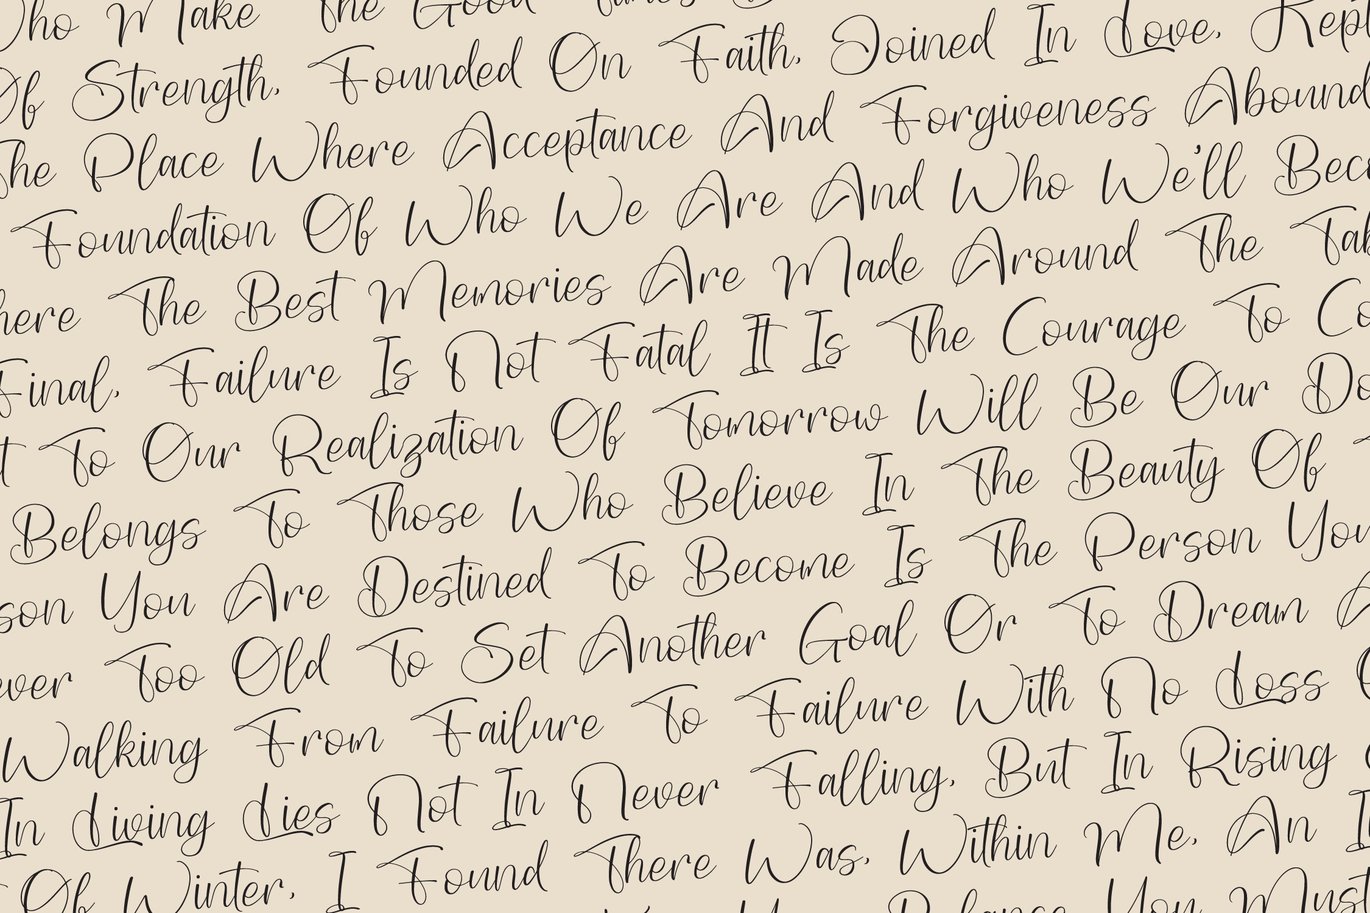 Who Make The Good
Of Strength, Founded On Faith, Joined In Love, Kept
The Place Where Acceptance And Forgiveness Abound
Foundation Of Who We Are And Who We'll Beco
here The Best Memories Are Made Around The Tab
Final, Failure Is Not Fatal It Is The Courage To Co
t To Our Realization Of Tomorrow Will Be Our Do
Belongs To Those Who Believe In The Beauty Of T
son You Are Destined To Become Is The Person You
ever Too Old To Set Another Goal Or To Dream A
Walking From Failure To Failure With No Loss O
In Living Lies Not In Never Falling, But In Rising
Of Winter, I Found There Was, Within Me, An I
Balance You Must